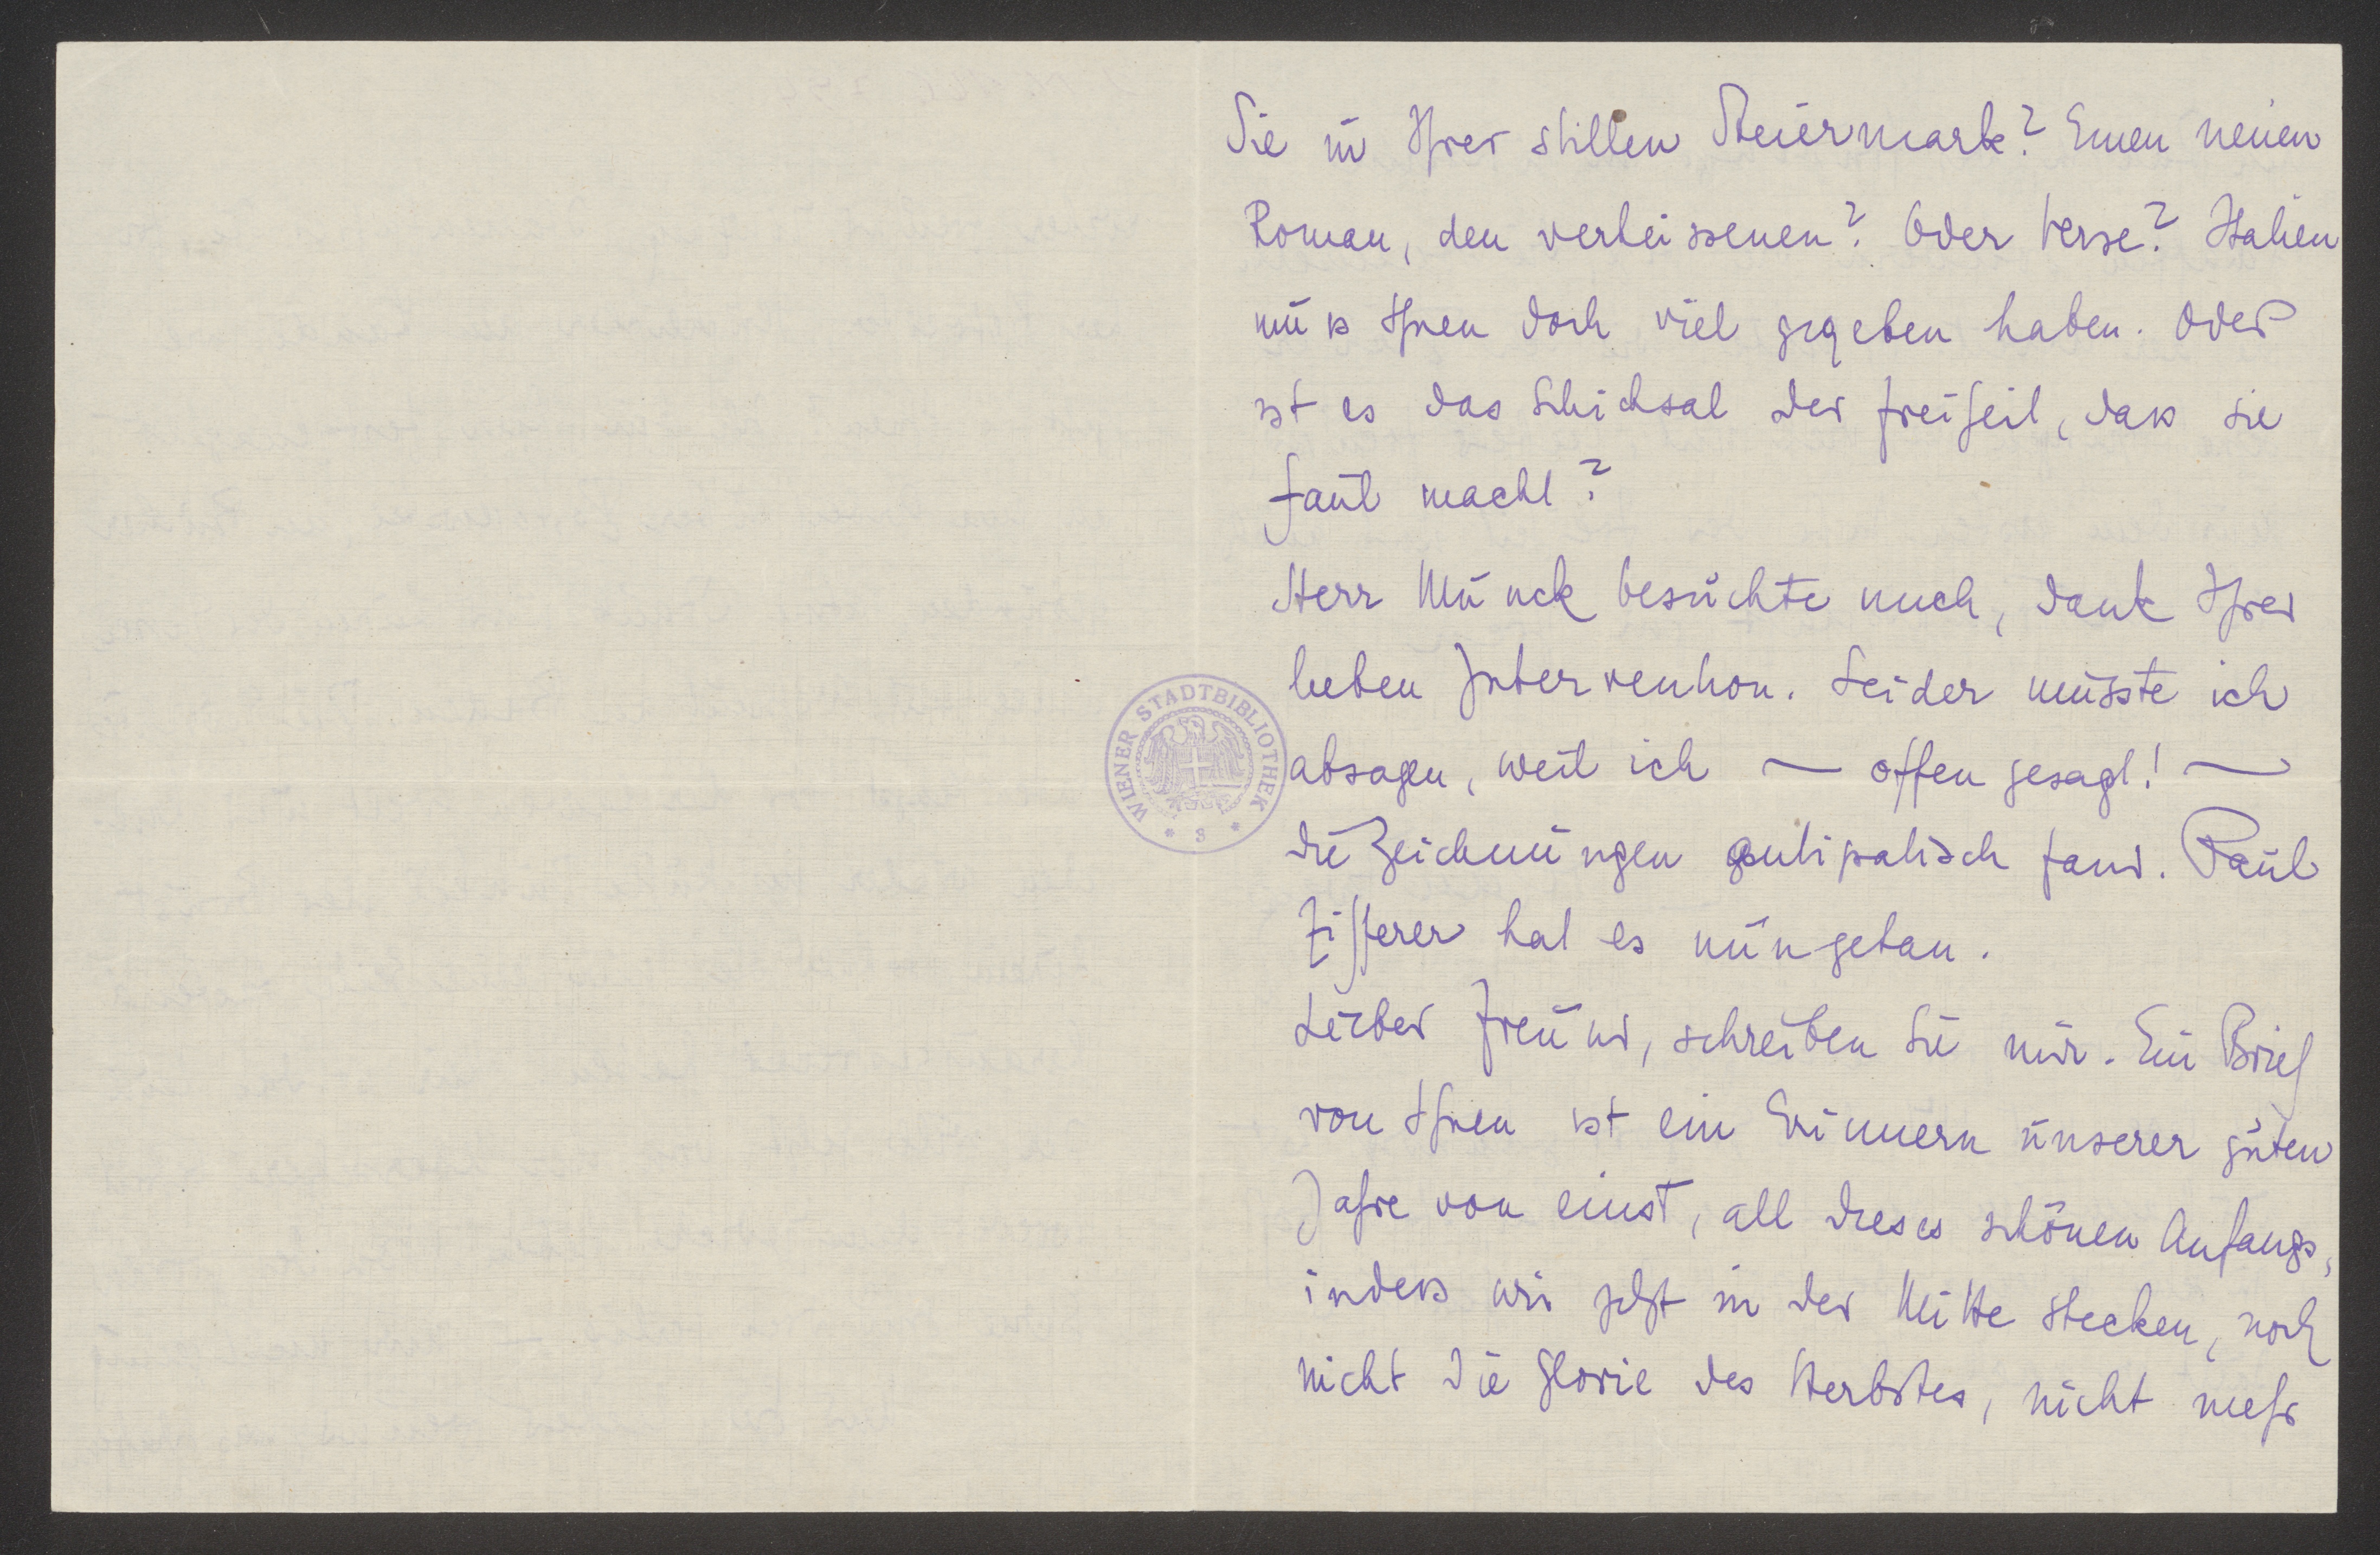 Sie in Ihrer stillen Steiermark? Einen neuen
Roman, den verheissenen? Oder Verse? Italien
muss Ihnen doch viel gegeben haben. Oder
ist es das Schicksal der Freiheit, dass sie
faul macht?
Herr Munck besuchte mich, dank Ihrer
lieben Intervention. Leider musste ich
absagen, weil ich — offen gesagt! —
die Zeichnungen antipatisch fand. Paul
Zifferer hat es nun getan.
Lieber Freund, schreiben Sie mir. Ein Brief
von Ihnen ist ein Erinnern unserer guten
Jahre von einst, all dieses schönen Anfangs,
indess wir jetzt in der Mitte stecken, noch
nicht die Glorie des Herbstes, nicht mehr
WIENER STADTBIBLIOTHEK
* 3 *